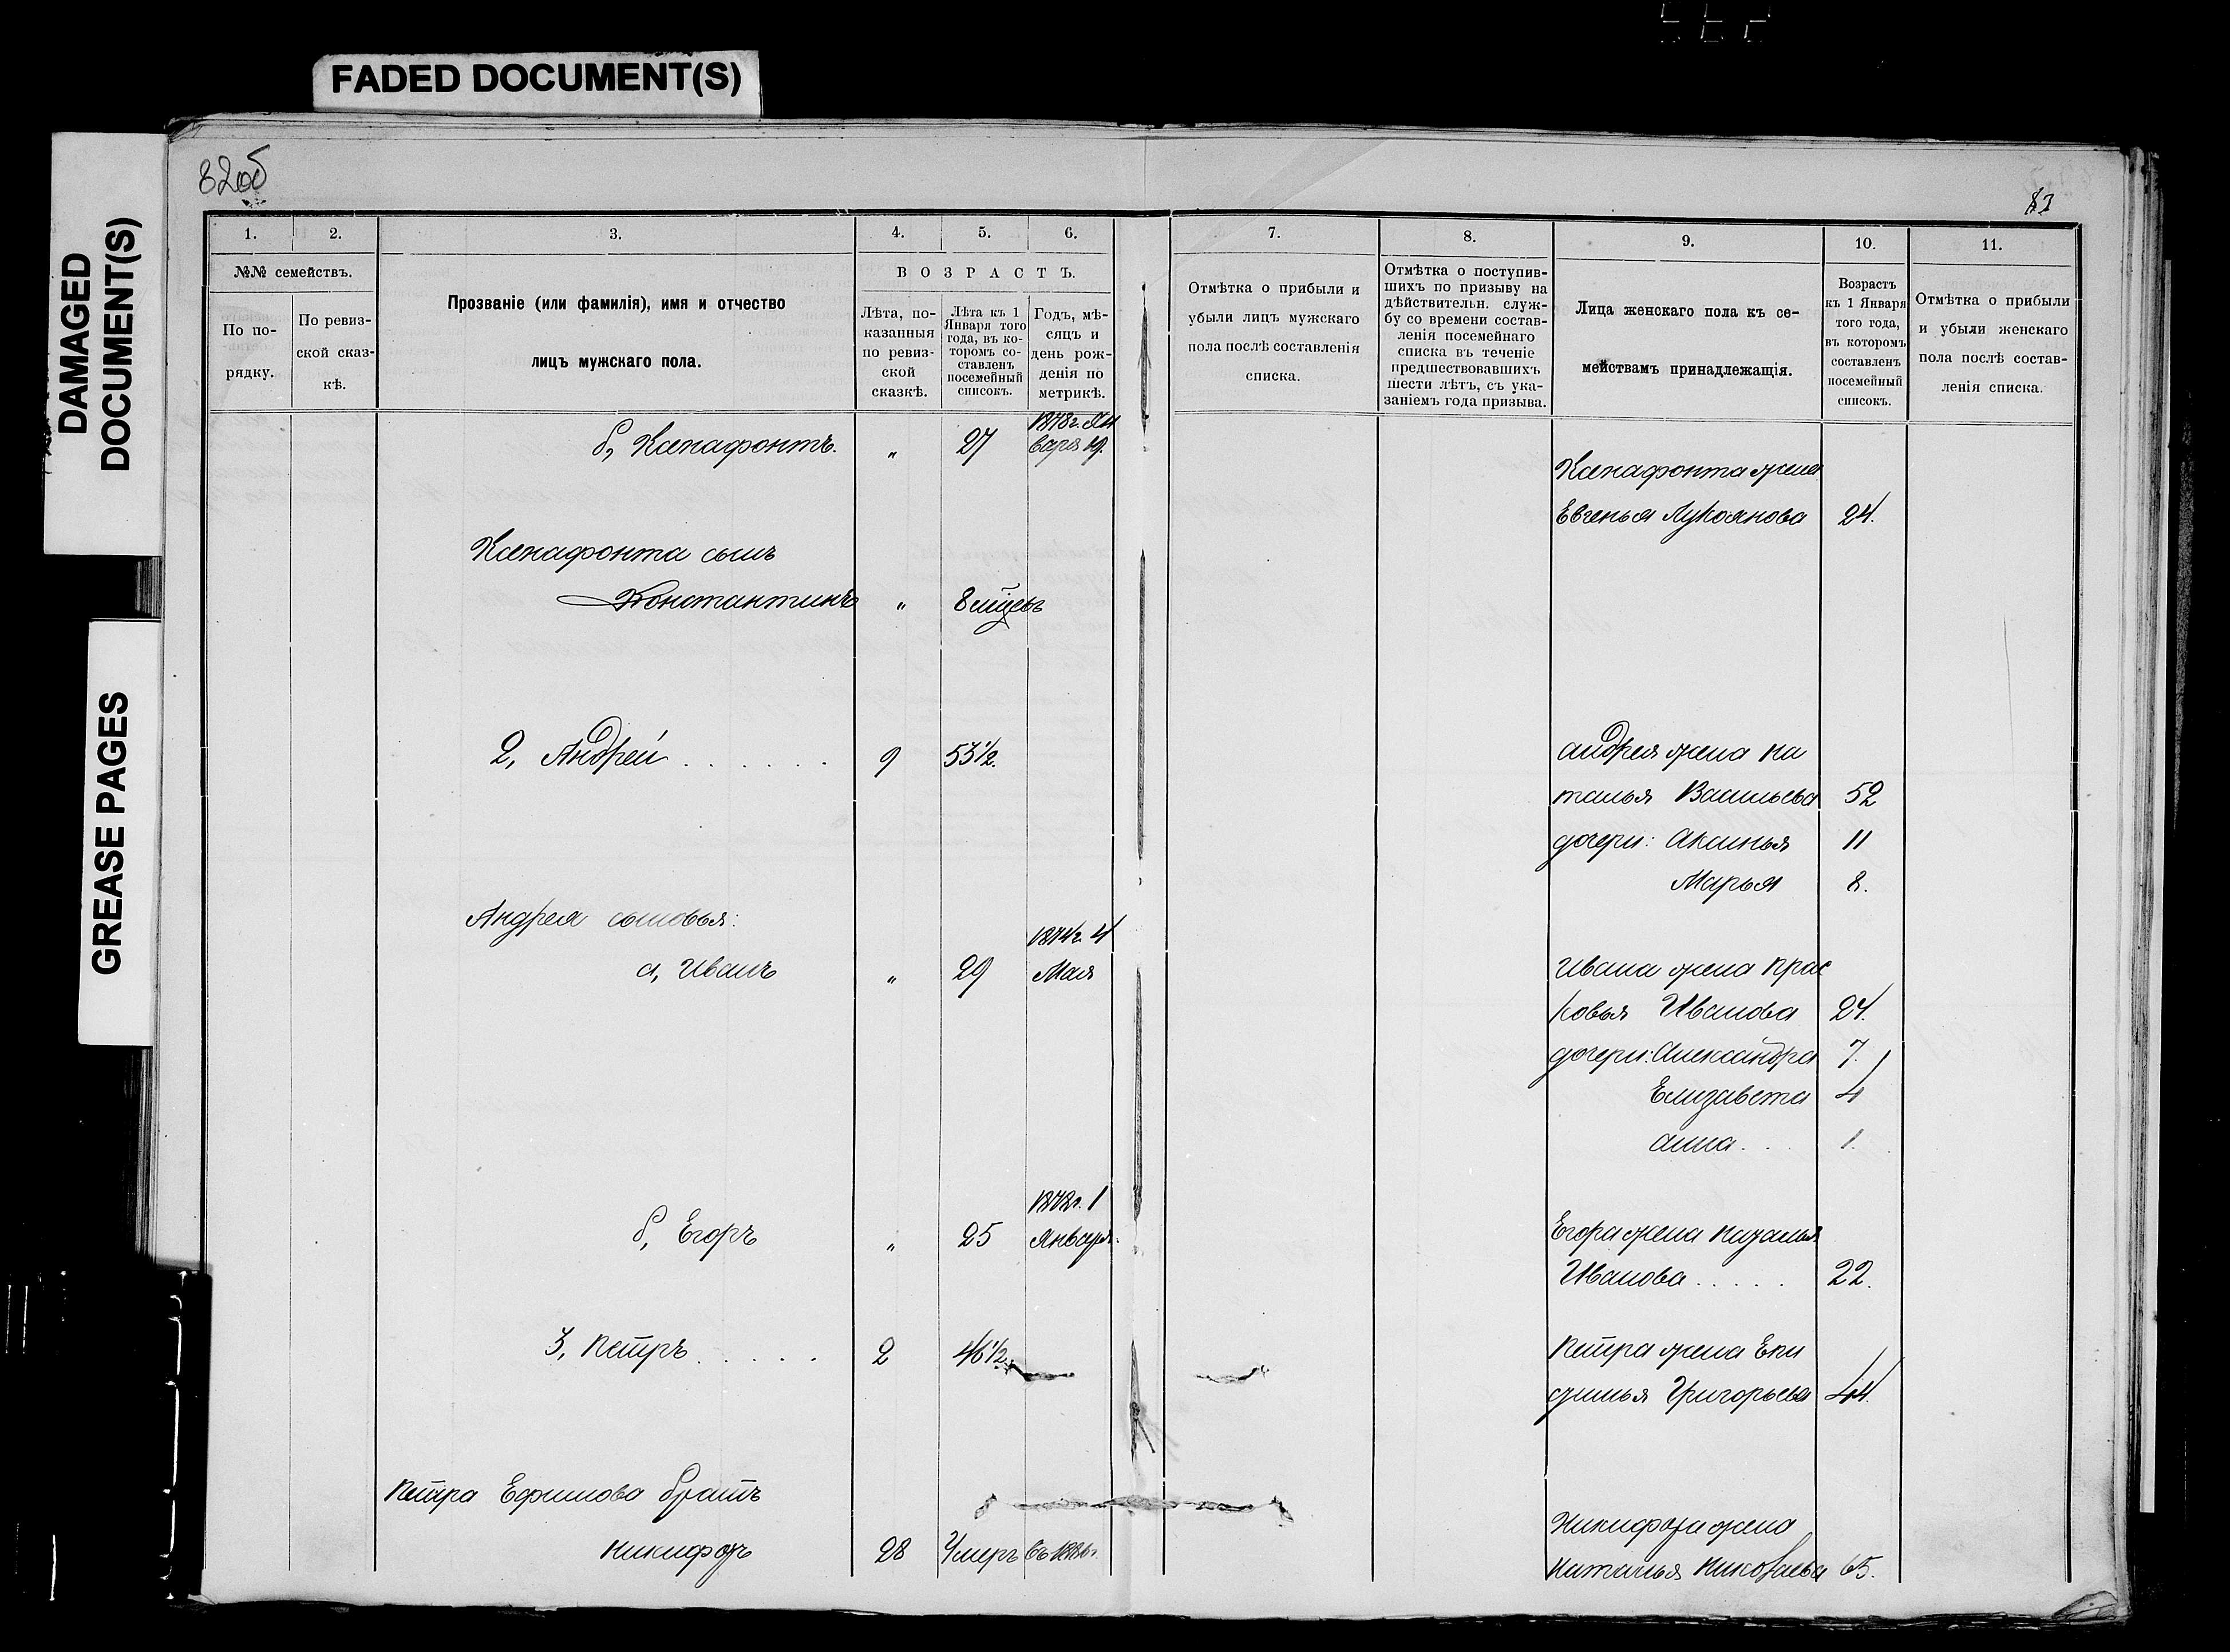 FADED DOCUMENT(S)
DAMAGED
DOCUMENT(S)
GREASE PAGES
82об
83
1.
2.
3.
4.
5.
6.
7.
8.
9.
10.
11.
№№ семействъ.
По по-
рядку.
По ревиз-
ской сказ-
кѣ.
Прозваніе (или фамилія), имя и отчество
лицъ мужскаго пола.
ВОЗРАСТЪ.
Лѣта, по-
казанныя
по ревиз-
ской
сказкѣ.
Лѣта къ 1
Января того
года, въ ко-
торомъ со-
ставленъ
посемейный
списокъ.
Годъ, мѣ-
сяцъ и
день рож-
денія по
метрикѣ.
Отмѣтка о прибыли и
убыли лицъ мужскаго
пола послѣ составленія
списка.
Отмѣтка о поступив-
шихъ по призыву на
дѣйствительн. служ-
бу со времени состав-
ленія посемейнаго
списка въ теченіе
предшествовавшихъ
шести лѣтъ, съ ука-
заніемъ года призыва.
Лица женскаго пола къ се-
мействамъ принадлежащія.
Возрастъ
къ 1 Января
того года,
въ которомъ
составленъ
посемейный
списокъ.
Отмѣтка о прибыли
и убыли женскаго
пола послѣ состав-
ленія списка.
б, Ксенафонтъ. „ 27 1878г. Ян
варя 19.
Ксенафонта жена
Евгенья Лукоянова 24.
Ксенафонта сынъ
Константинъ „ 8 мѣцевъ
2, Андрей . . . . . . 9 53½.
Андрея жена На
талья Васильева 52
дочери: Аксинья 11
Марья 8.
Андрея сыновья:
а, Иванъ „ 29 1874г. 4
Мая
Ивана жена Прас
ковья Иванова 24.
дочери: Александра 7.
Елизавета 4
Анна . . 1.
б, Егоръ „ 25 1878г. 1
Января.
Егора жена
Иванова . . . . . 22.
3, Петръ . . . . . 2 46½.
Петра жена Ека
Григорьева 44.
Петра Ефимова братъ
Никифоръ 28 Умеръ въ
Никифора жена
Наталья Николаева 65.